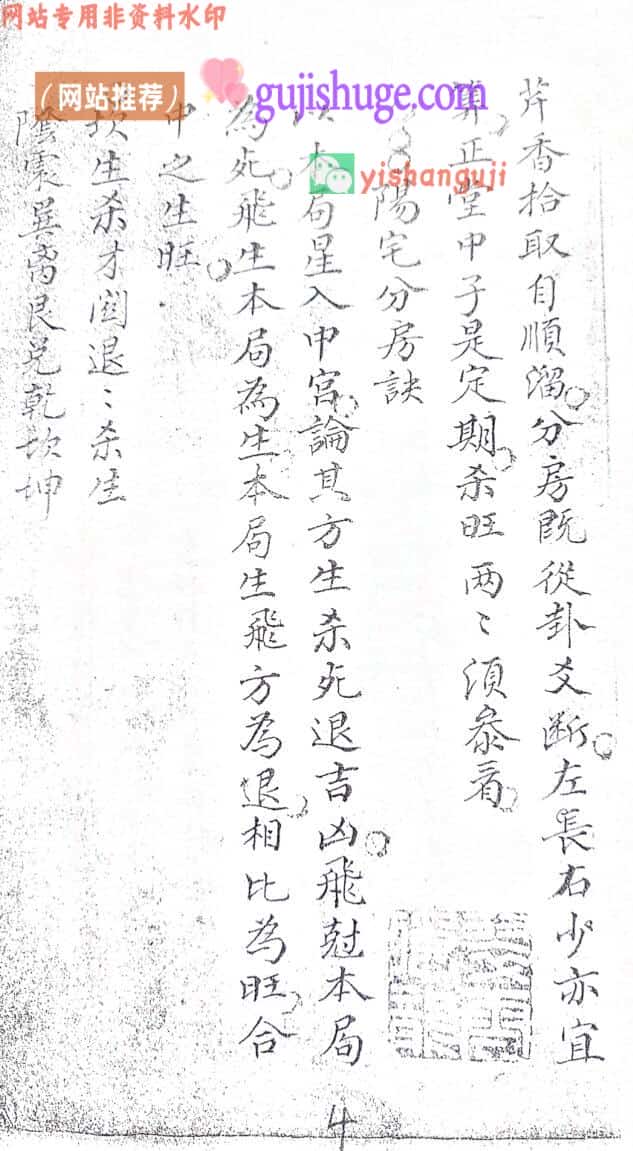 网站专用非资料水印
（网站推荐）
gujishuge.com
yishanguji
芹香拾取自順溜分房既從卦爻断左長右少亦宜
算正堂中子是定期杀旺两〻須叅看
陽宅分房訣
以本局星入中宮論其方生杀死退吉凶飛尅本局
為死飛生本局為生本局生飛方為退相比為旺合
中之生旺
坎生杀才関退〻杀生
陰震巽离艮兑乾坎坤
4